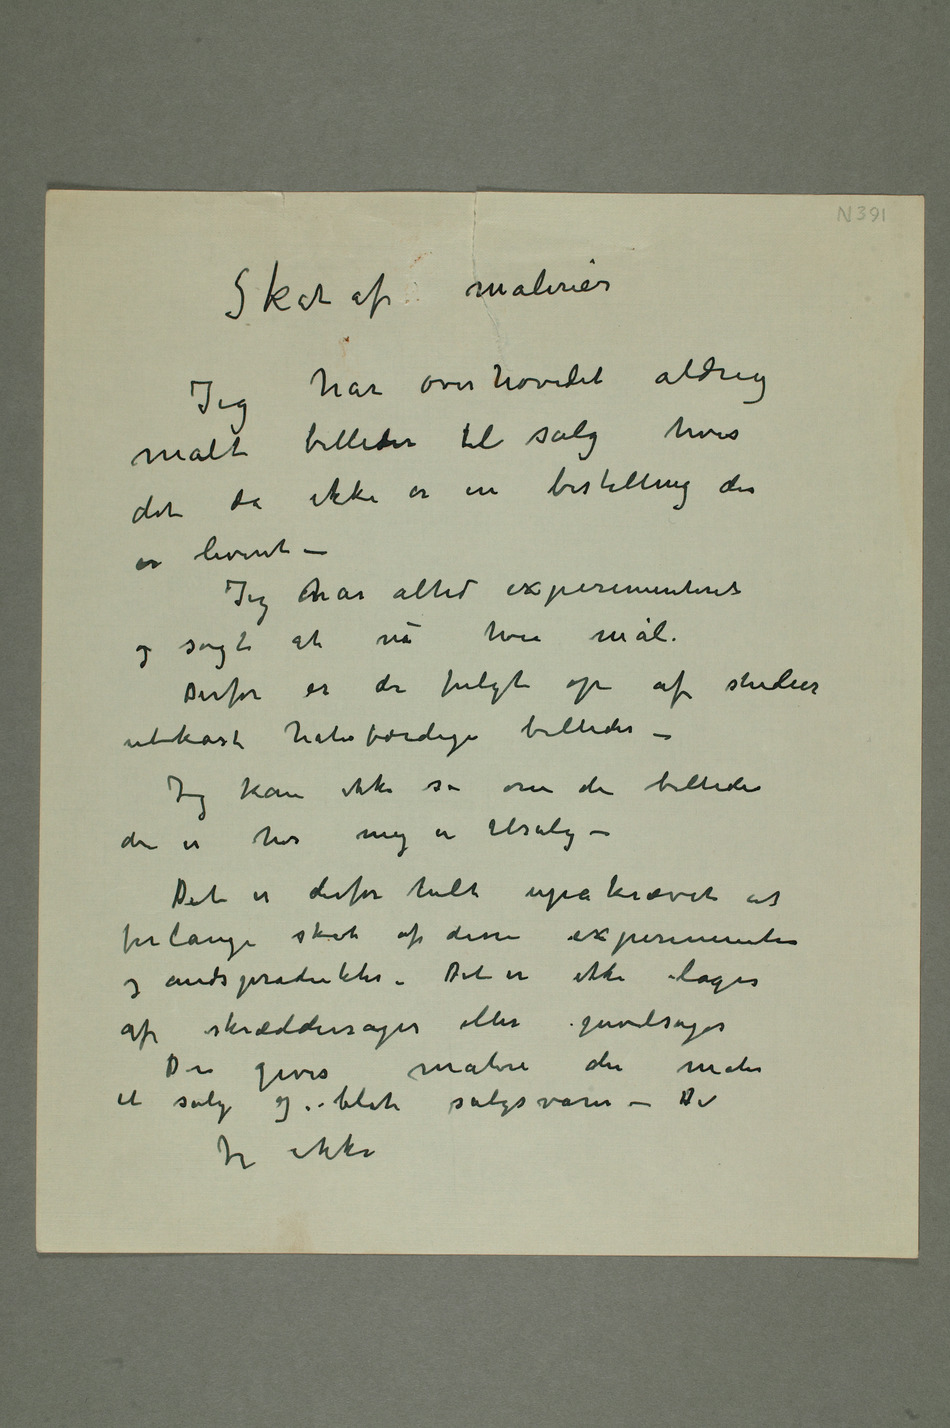 N391
Skat af malerier
Jeg har overhovedet aldrig
malt billeder til salg hvis
det da ikke er en bestilling der
er leveret –
Jeg har altid experimenteret
og søgt at nå høie mål.
Derfor er der fulgt op af studier
utkast halvfærdige billeder –
Jeg kan ikke se om de billeder
der er hos mig er tilsalg –
Det er derfor helt upåkrævet at
forlange skat af disse experimenter
og åndsprodukter. Det er ikke lager
af skræddersager eller
Der gives malere der maler
til salg og blot salgsvarer – De
Jeg ikke